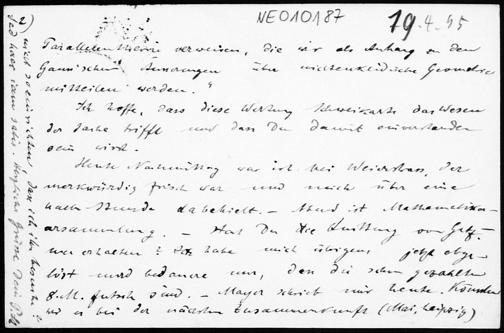 NE010187
19.4.95
Parallelentheorie verweisen, die wir als Anhang zu den
Gaussischen Äusserungen über nichteuklidische Geometrie
mitteilen werden."
Ich hoffe, dass diese Wertung Schweikarts das Wesen
der Sache trifft und dass Du damit einverstanden
sein wirst.
Heute Nachmittag war ich bei Weierstrass, der
merkwürdig frisch war und mich über eine
halbe Stunde dabehielt. – Abend ist Mathematiker-
versammlung. – Hast Du die Quittung von
erhalten? Ich habe mich übrigens jetzt
löst und bedaure nur, dass die schon gezahlten
8 M. futsch sind. – Mayer schrieb mir heute. Könntest
es bei der nächsten Zusammenkunft (Mai, Leipzig)
2) nicht so einrichten, dass ich ihn
Sed haec iam satis. Herzliche Grüsse Dein